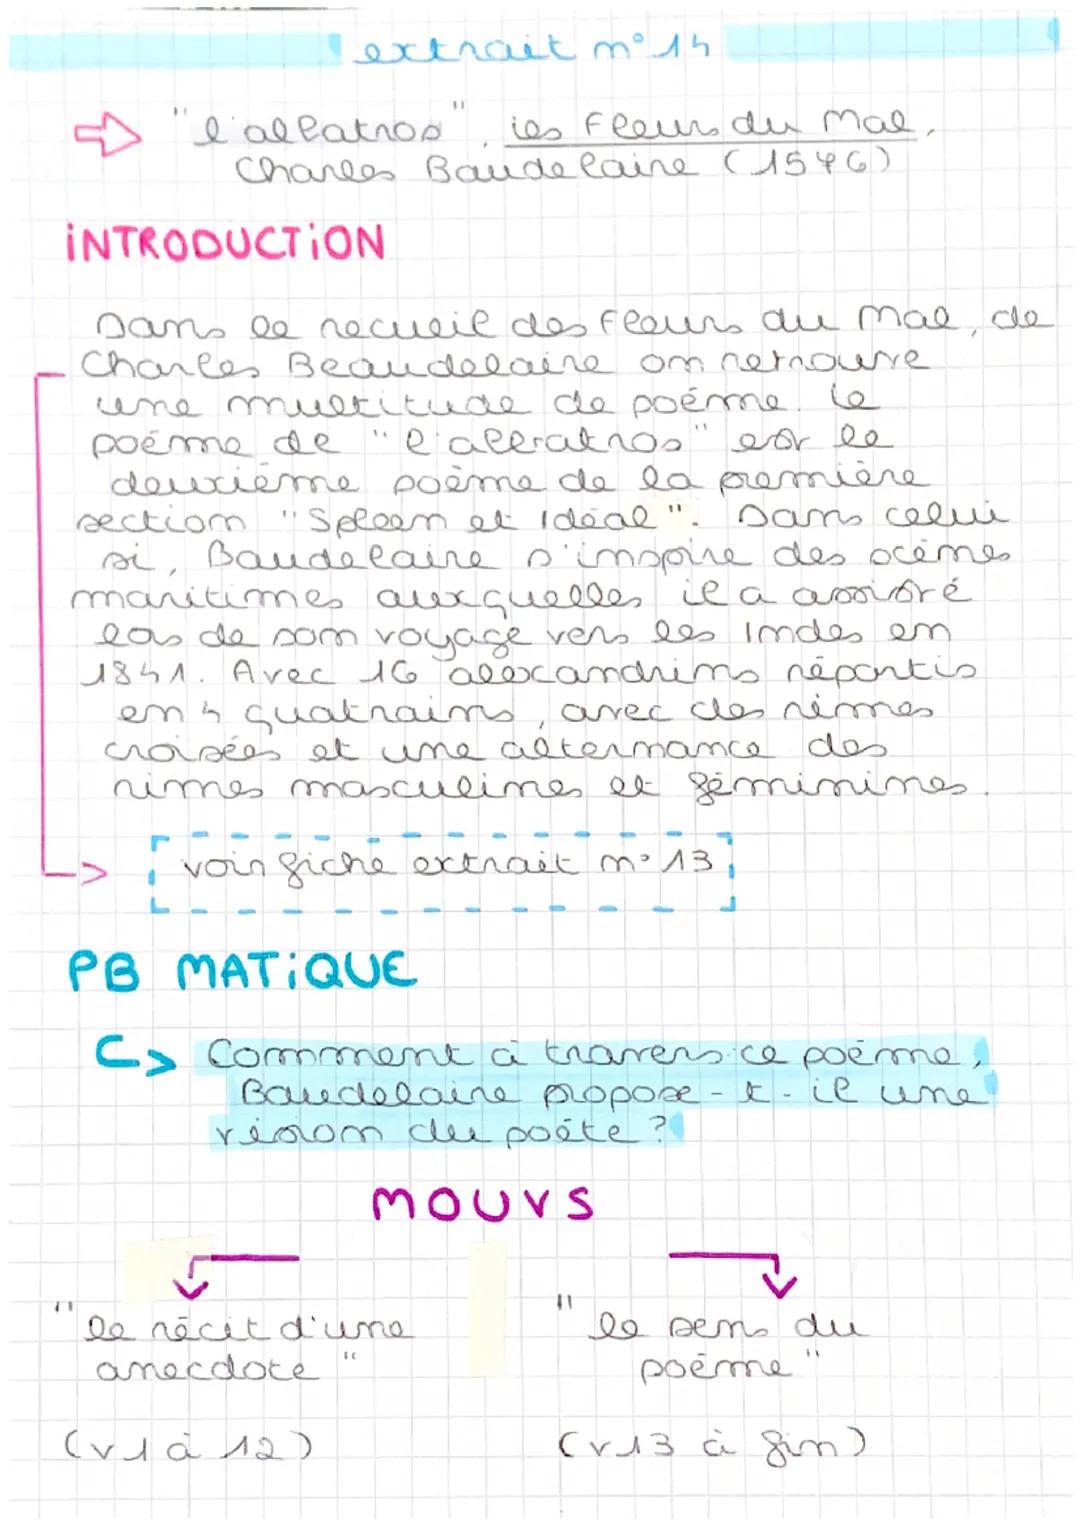 extrait n°14
"l'albatros", les Fleurs du Mal,
Charles Baudelaire (1576)
iNTRODUCTiON
Dans le recueil des Fleurs du Mal, de
Charles Beaudelaire on retrouve
une multitude de poème. Le
poème de "l'albratros" est le
deuxième poème de la première
section "Spleen et Idéal". Dans celui
si, Baudelaire s'inspire des scènes
maritimes auxquelles il a assisté
los de son voyage vers les Indes en
1841. Avec 16 alexandrins répartis
en 4 quatrains, avec des rimes
croisées et une alternance des
rimes masculines et féminines.
voir fiche extrait n°13
PB MATiQUE
Comment à travers ce poème,
Baudelaire propose-t-il une
vision du poète ?
MOUVS
"le récit d'une
anecdote"
(v1 à 12)
"le sens du
poème"
(v13 à fin)